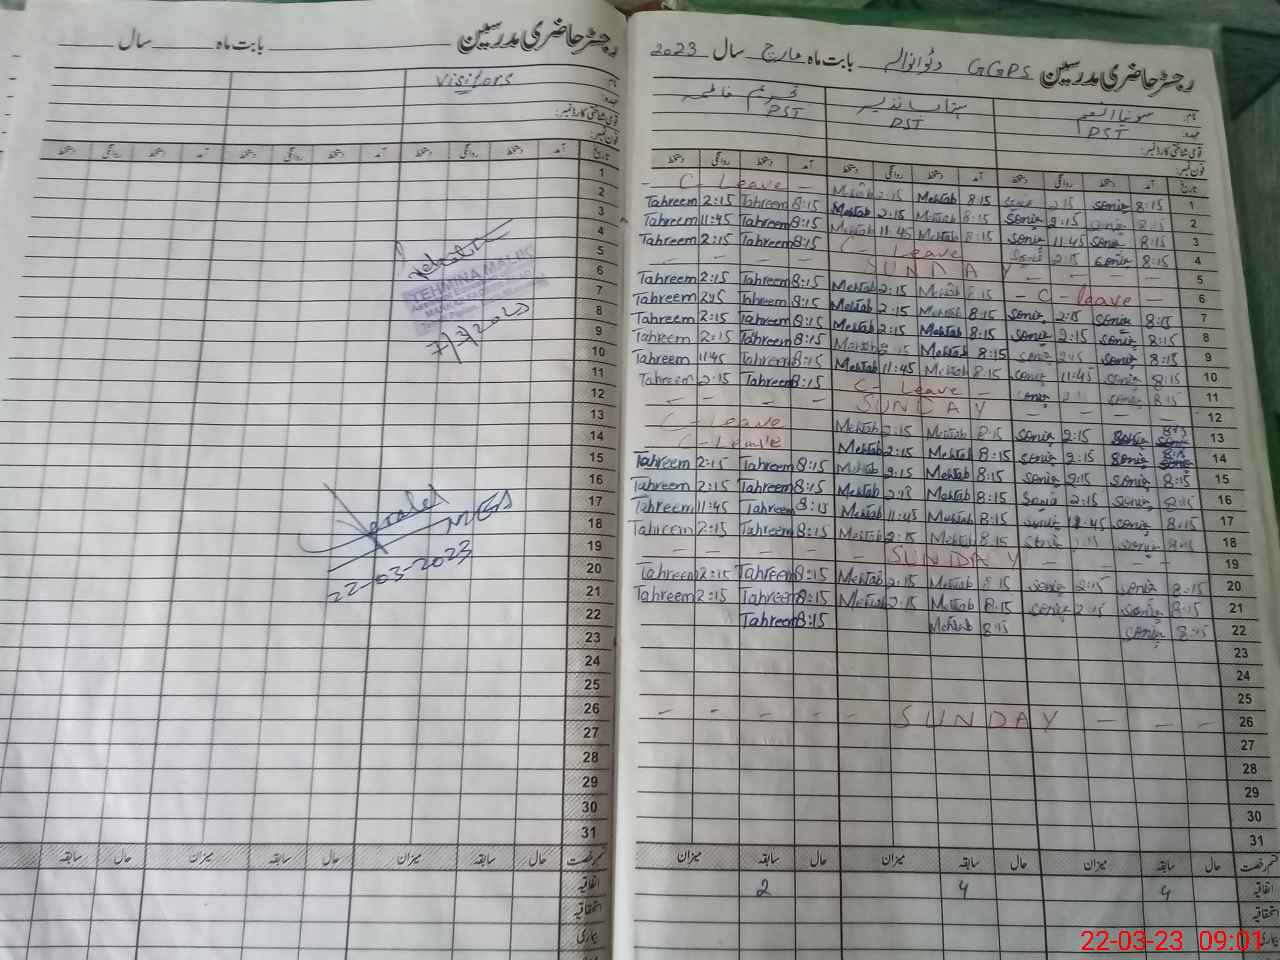 رجسٹر حاضری مدرسین بابت ماہ سال
Visitors
نام:
عہدہ:
قومی شناختی کارڈ نمبر:
فون نمبر:
تاریخ آمد دستخط روانگی دستخط آمد دستخط روانگی دستخط آمد دستخط روانگی دستخط
1
2
3
4
5
6
TEHMINA MALIK
7
8
7/3/2023
9
10
11
12
13
14
15
16
17
18
19
22-03-2023
20
21
22
23
24
25
26
27
28
29
30
31
قسم رخصت حال سابقہ میزان حال سابقہ میزان حال سابقہ
اتفاقیہ
استحقاقیہ
بیماری
رجسٹر حاضری مدرسین GGPS بابت ماہ مارچ سال 2023
نام: سونیا انعم تحریم فاطمہ
عہدہ: PST PST PST
قومی شناختی کارڈ نمبر:
فون نمبر:
تاریخ آمد دستخط روانگی دستخط آمد دستخط روانگی دستخط آمد دستخط روانگی دستخط
— C Leave — Mehtab 2:15 Mehtab 8:15 Sonia 2:15 Sonia 8:15 1
Tahreem 2:15 Tahreem 8:15 Mehtab 2:15 Mehtab 8:15 Sonia 2:15 Sonia 8:15 2
Tahreem 11:45 Tahreem 8:15 Mehtab 11:45 Mehtab 8:15 Sonia 11:45 Sonia 8:15 3
Tahreem 2:15 Tahreem 8:15 C — Leave Sonia 2:15 Sonia 8:15 4
— — — — SUNDAY — — — 5
Tahreem 2:15 Tahreem 8:15 Mehtab 2:15 Mehtab 8:15 — C — leave — 6
Tahreem 2:15 Tahreem 8:15 Mehtab 2:15 Mehtab 8:15 Sonia 2:15 Sonia 8:15 7
Tahreem 2:15 Tahreem 8:15 Mehtab 2:15 Mehtab 8:15 Sonia 2:15 Sonia 8:15 8
Tahreem 2:15 Tahreem 8:15 Mehtab 2:15 Mehtab 8:15 Sonia 2:15 Sonia 8:15 9
Tahreem 11:45 Tahreem 8:15 Mehtab 11:45 Mehtab 8:15 Sonia 11:45 Sonia 8:15 10
Tahreem 2:15 Tahreem 8:15 C — Leave — Sonia Sonia 8:15 11
— — — — SUNDAY — — — — 12
C — Leave Mehtab 2:15 Mehtab 8:15 Sonia 2:15 Sonia 8:15 13
C — Leave Mehtab 2:15 Mehtab 8:15 Sonia 2:15 Sonia 8:15 14
Tahreem 2:15 Tahreem 8:15 Mehtab 2:15 Mehtab 8:15 Sonia 2:15 Sonia 8:15 15
Tahreem 2:15 Tahreem 8:15 Mehtab 2:15 Mehtab 8:15 Sonia 2:15 Sonia 8:15 16
Tahreem 11:45 Tahreem 8:15 Mehtab 11:45 Mehtab 8:15 Sonia 11:45 Sonia 8:15 17
Tahreem 2:15 Tahreem 8:15 Mehtab 2:15 Mehtab 8:15 Sonia Sonia 8:15 18
— — — — — SUNDAY — — — 19
Tahreem 2:15 Tahreem 8:15 Mehtab 2:15 Mehtab 8:15 Sonia 2:15 Sonia 8:15 20
Tahreem 2:15 Tahreem 8:15 Mehtab 2:15 Mehtab 8:15 Sonia 2:15 Sonia 8:15 21
Tahreem 8:15 Mehtab 8:15 Sonia 8:15 22
23
24
25
— — — — — SUNDAY — — — 26
27
28
29
30
31
قسم رخصت حال سابقہ میزان حال سابقہ میزان حال سابقہ میزان
اتفاقیہ 4 4 2
استحقاقیہ
بیماری
22-03-23 09:01